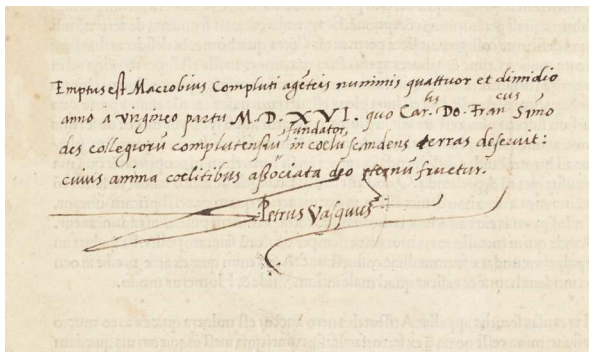 Emptus est Macrobius Compluti agēteis nummis quattuor et dimidio
anno a virgineo partu M.D.XVI. quo Car.lis Do. Fran.cus Simo
des collegiorū complutensiū fundator, in coelū scandens terras deseruit:
cuius anima coelitibus associata deo eternū fruetur.
Petrus Vasquius